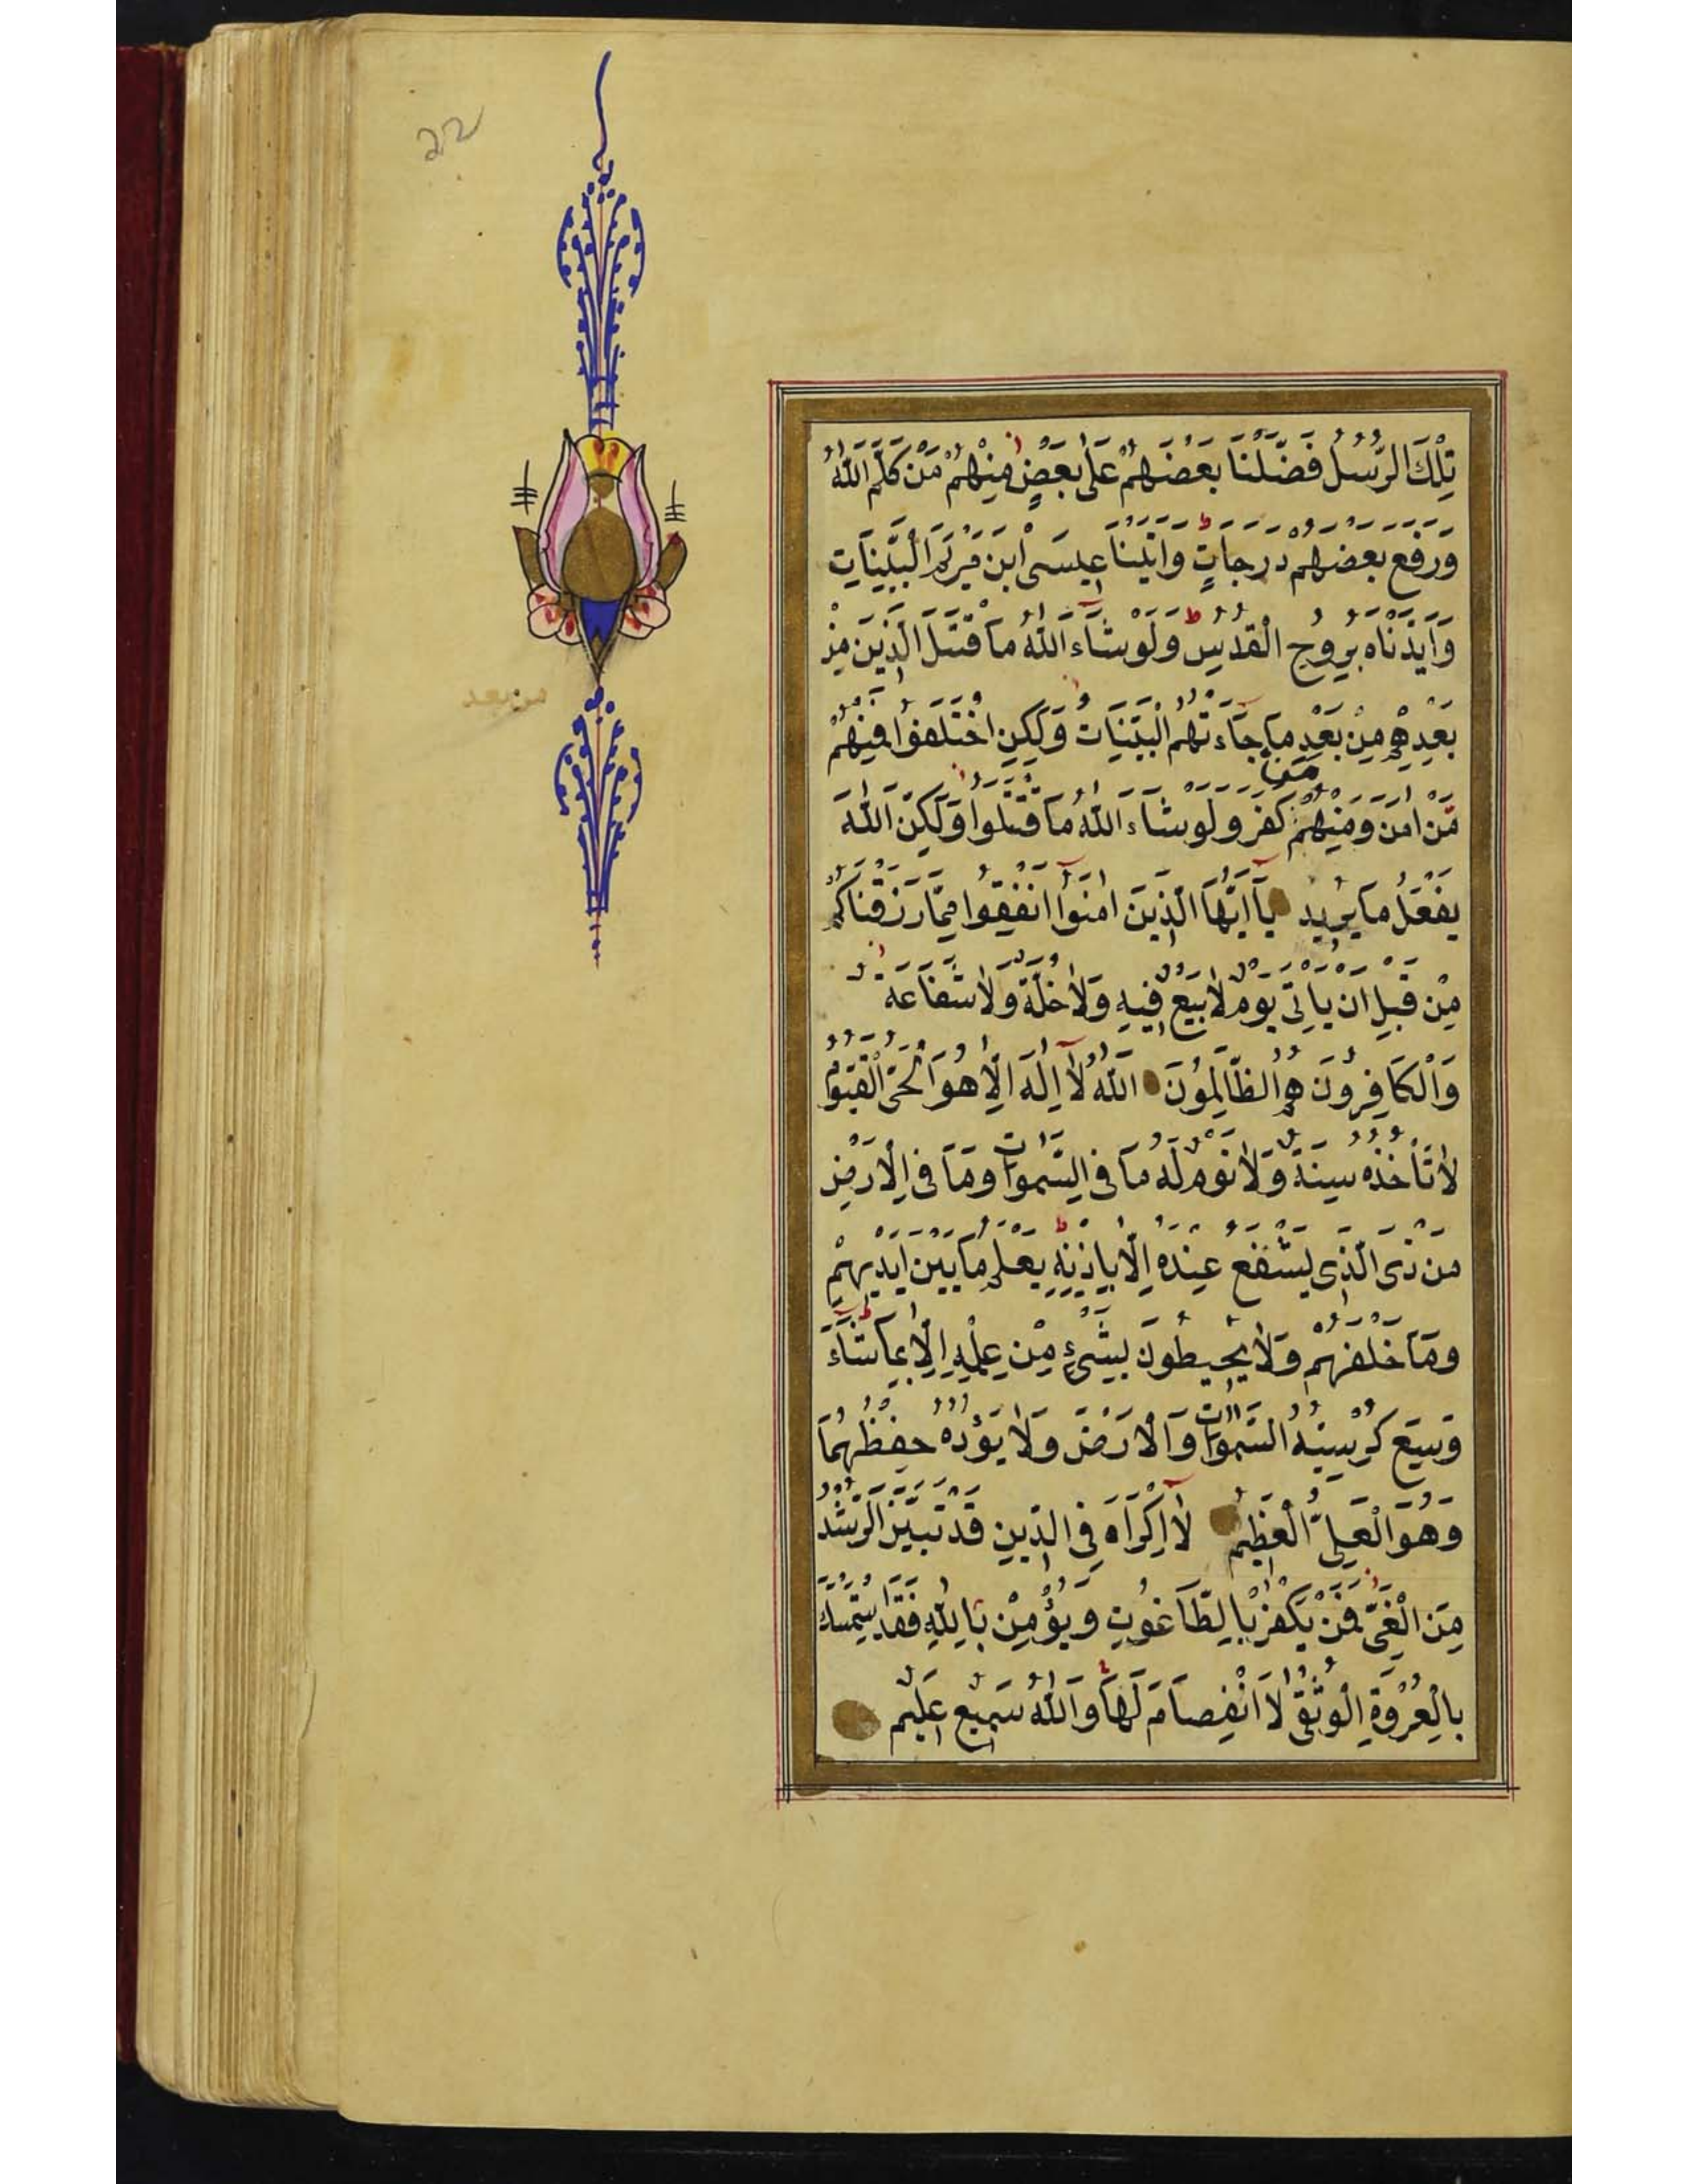 22
تِلْكَ الرُّسُلُ فَضَّلْنَا بَعْضَهُمْ عَلَى بَعْضٍ مِنْهُمْ مَنْ كَلَّمَ اللهُ
وَرَفَعَ بَعْضَهُمْ دَرَجَاتٍ وَاتَيْنَا عِيسَى ابْنَ مَرْيَمَ الْبَيِّنَاتِ
وَاَيَّدْنَاهُ بِرُوحِ الْقُدُسِ وَلَوْ شَاءَ اللهُ مَا قْتَتَلَ الَّذِينَ مِنْ
بَعْدِهِمْ مِنْ بَعْدِ مَا جَاءَتْهُمُ الْبَيِّنَاتُ وَلَكِنِ اخْتَلَفُوا فَمِنْهُمْ
مَنْ
مَنْ امَنَ وَمِنْهُمْ كَفَرَ وَلَوْ شَاءَ اللهُ مَا قْتَتَلُوا وَلَكِنَّ اللهَ
يَفْعَلُ مَا يُرِيدُ يَا اَيُّهَا الَّذِينَ امَنُوا اَنْفِقُوا مِمَّا رَزَقْنَاكُمْ
مِنْ قَبْلِ اَنْ يَاْتِيَ يَوْمٌ لَا بَيْعٌ فِيهِ وَلَا خُلَّةٌ وَلَا شَفَاعَةٌ
وَالْكَافِرُونَ هُمُ الظَّالِمُونَ اَللهُ لَا اِلَهَ اِلَّا هُوَ الْحَيُّ الْقَيُّومُ
لَا تَاْخُذُهُ سِنَةٌ وَلَا نَوْمٌ لَهُ مَا فِي السَّمَوَاتِ وَمَا فِي الْاَرْضِ
مَنْ ذَى الَّذِي يَشْفَعُ عِنْدَهُ اِلَّا بِاِذْنِهِ يَعْلَمُ مَا بَيْنَ اَيْدِيهِمْ
وَمَا خَلْفَهُمْ وَلَا يُحِيطُونَ بِشَيْءٍ مِنْ عِلْمِهِ اِلَّا بِمَا شَاءَ
وَسِعَ كُرْسِيُّهُ السَّمَوَاتِ وَالْاَرْضَ وَلَا يَؤُدُهُ حِفْظُهُمَا
وَهُوَ الْعَلِيُّ الْعَظِيمُ لَا اِكْرَاهَ فِي الدِّينِ قَدْ تَبَيَّنَ الرُّشْدُ
مِنَ الْغَيِّ فَمَنْ يَكْفُرْ بِالطَّاغُوتِ وَيُؤْمِنْ بِاللهِ فَقَدِ اسْتَمْسَكَ
بِالْعُرْوَةِ الْوُثْقَى لَا انْفِصَامَ لَهَا وَاللهُ سَمِيعٌ عَلِيمٌ
من بعد